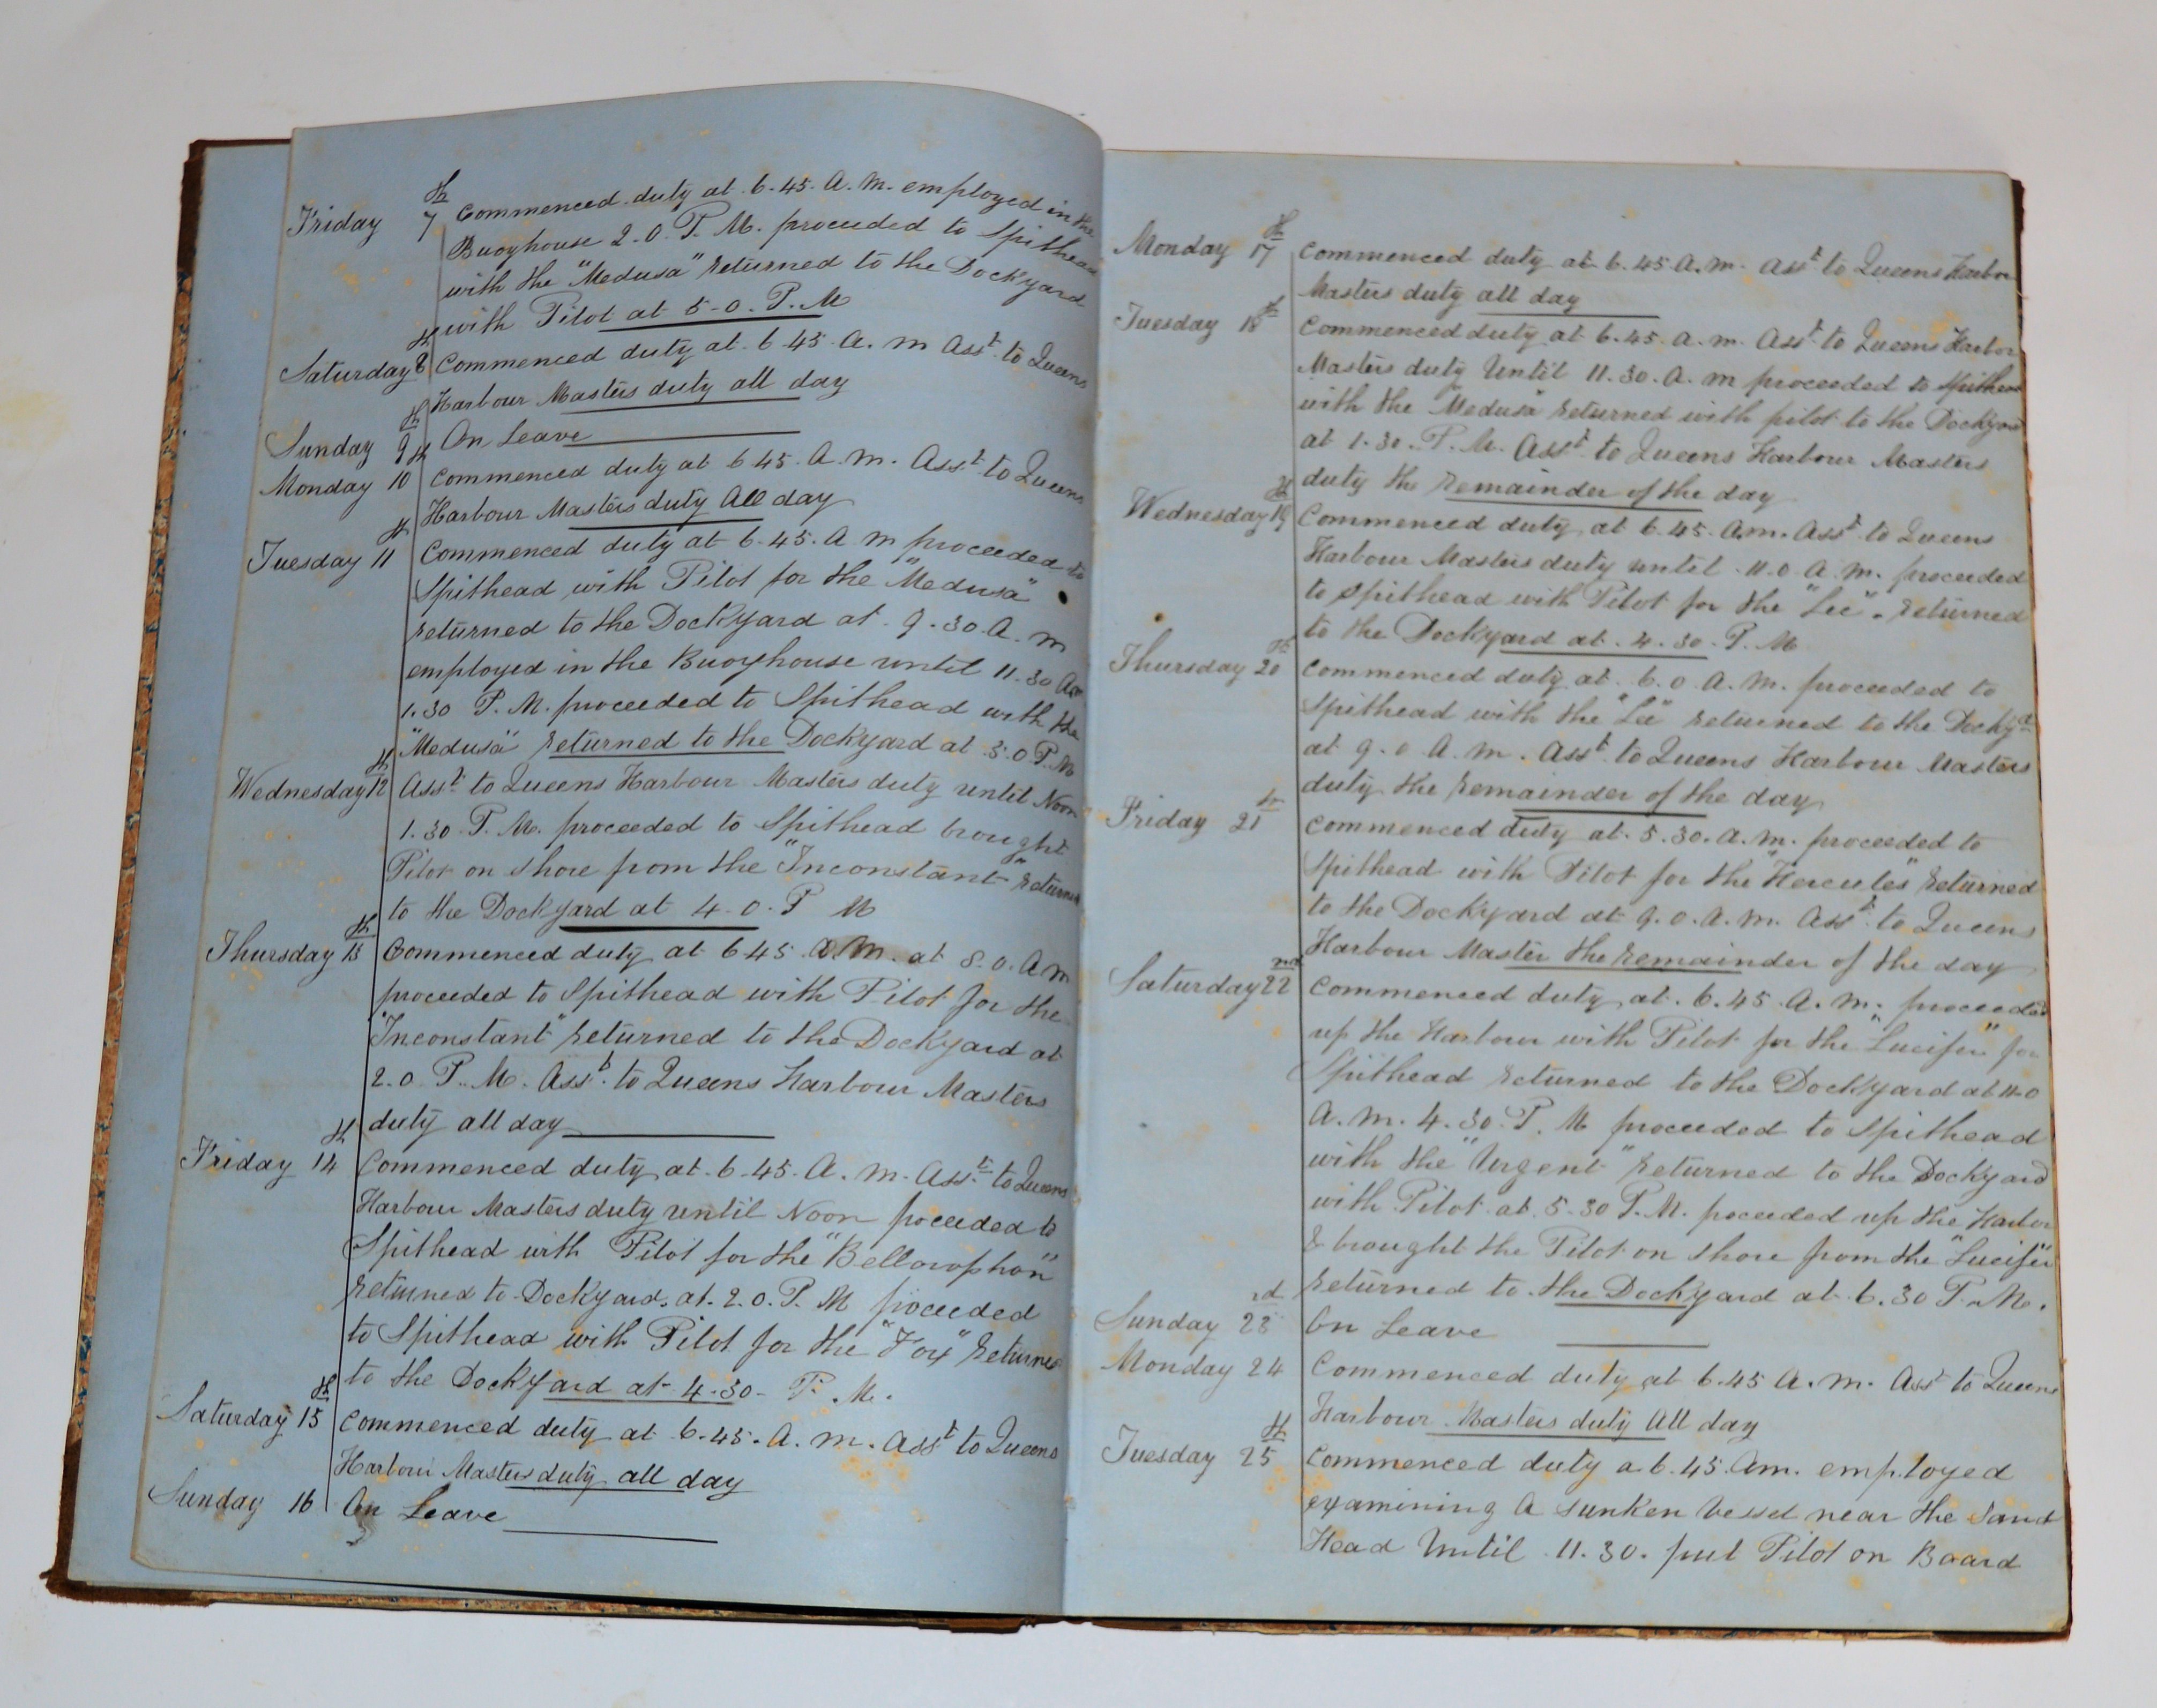 Friday 7th Commenced duty at 6-45 A.M. employed in the
Buoyhouse 2-0. P. M. proceeded to Spithead
with the "Medusa" returned to the Dockyard
with Pilot at 5-0. P. M
Saturday 8th Commenced duty at 6 45 A. m Asst to Queens
Harbour Masters duty all day
Sunday 9th On Leave
Monday 10th Commenced duty at 6 45 A. m. Asst to Queens
Harbour Masters duty All day
Tuesday 11th Commenced duty at 6.45. A m proceeded to
Spithead with Pilot for the "Medusa"
returned to the Dockyard at 9.30. A. m
employed in the Buoyhouse until 11-30 Am
1.30 P. M. proceeded to Spithead with the
"Medusa" returned to the Dockyard at 5.0 P. M
Wednesday 12th Asst to Queens Harbour Masters duty until Noon
1.30. P. M. proceeded to Spithead brought
Pilot on shore from the "Inconstant" returned
to the Dockyard at 4.0. P M
Thursday 13th Commenced duty at 6 45 A.M. at 8.0. A m
proceeded to Spithead with Pilot for the
"Inconstant" returned to the Dockyard at
2.0 P. M. Asst to Queens Harbour Masters
duty all day
Friday 14th Commenced duty at 6.45. A. m. Asst to Queens
Harbour Masters duty until Noon poceeded to
Spithead with Pilot for the "Bellorophon"
returned to Dockyard. at. 2.0. P. M poceeded
to Spithead with Pilot for the "Fox" returned
to the Dockyard at 4-30- P. M.
Saturday 15th Commenced duty at 6.45. A. m. Asst to Queens
Harbour Masters duty all day
Sunday 16 On Leave
Monday 17th Commenced duty at 6.45 A. m. Asst to Queens Harbour
Masters duty all day
Tuesday 18th Commenced duty at 6.45. a. m. Asst to Queens Harbor
Masters duty Until 11.30. A. m proceeded to Spithead
with the "Medusa" returned with pilot to the Dockyard
at 1.30. P. M. Asst to Queens Harbour Masters
duty the remainder of the day
Wednesday 19th Commenced duty at 6.45 Am. Asst to Queens
Harbour Masters duty until 11.0 A. m. proceeded
to Spithead with Pilot for the "Lee". returned
to the Dockyard at 4.30. P. M
Thursday 20th Commenced duty at 6.0 A. m. proceeded to
Spithead with the "Lee" returned to the Dockyd
at 9.0 A. m. Asst to Queens Harbour Masters
duty the remainder of the day
Friday 21st Commenced duty at 5.30. A. m. proceeded to
Spithead with Pilot for the "Hercules" returned
to the Dockyard at 9.0. A. m. Asst to Queens
Harbour Master the remainder of the day
Saturday 22nd Commenced duty at 6.45 A. m. proceeded
up the Harbour with Pilot for the "Lucifer" for
Spithead returned to the Dockyard at 11-0
A. m. 4.30. P. M proceeded to Spithead
with the "Urgent" returned to the Dockyard
with Pilot at 5.30 P. M. poceeded up the Harbor
& brought the Pilot on shore from the "Lucifer"
returned to the Dockyard at 6.30 P. M.
Sunday 23rd On Leave
Monday 24 Commenced duty at 6.45 A. m. Asst to Queens
Harbour Masters duty All day
Tuesday 25th Commenced duty a 6.45. Am. employed
examining A sunken vessel near the Sand
Head Until 11.30. put Pilot on Board